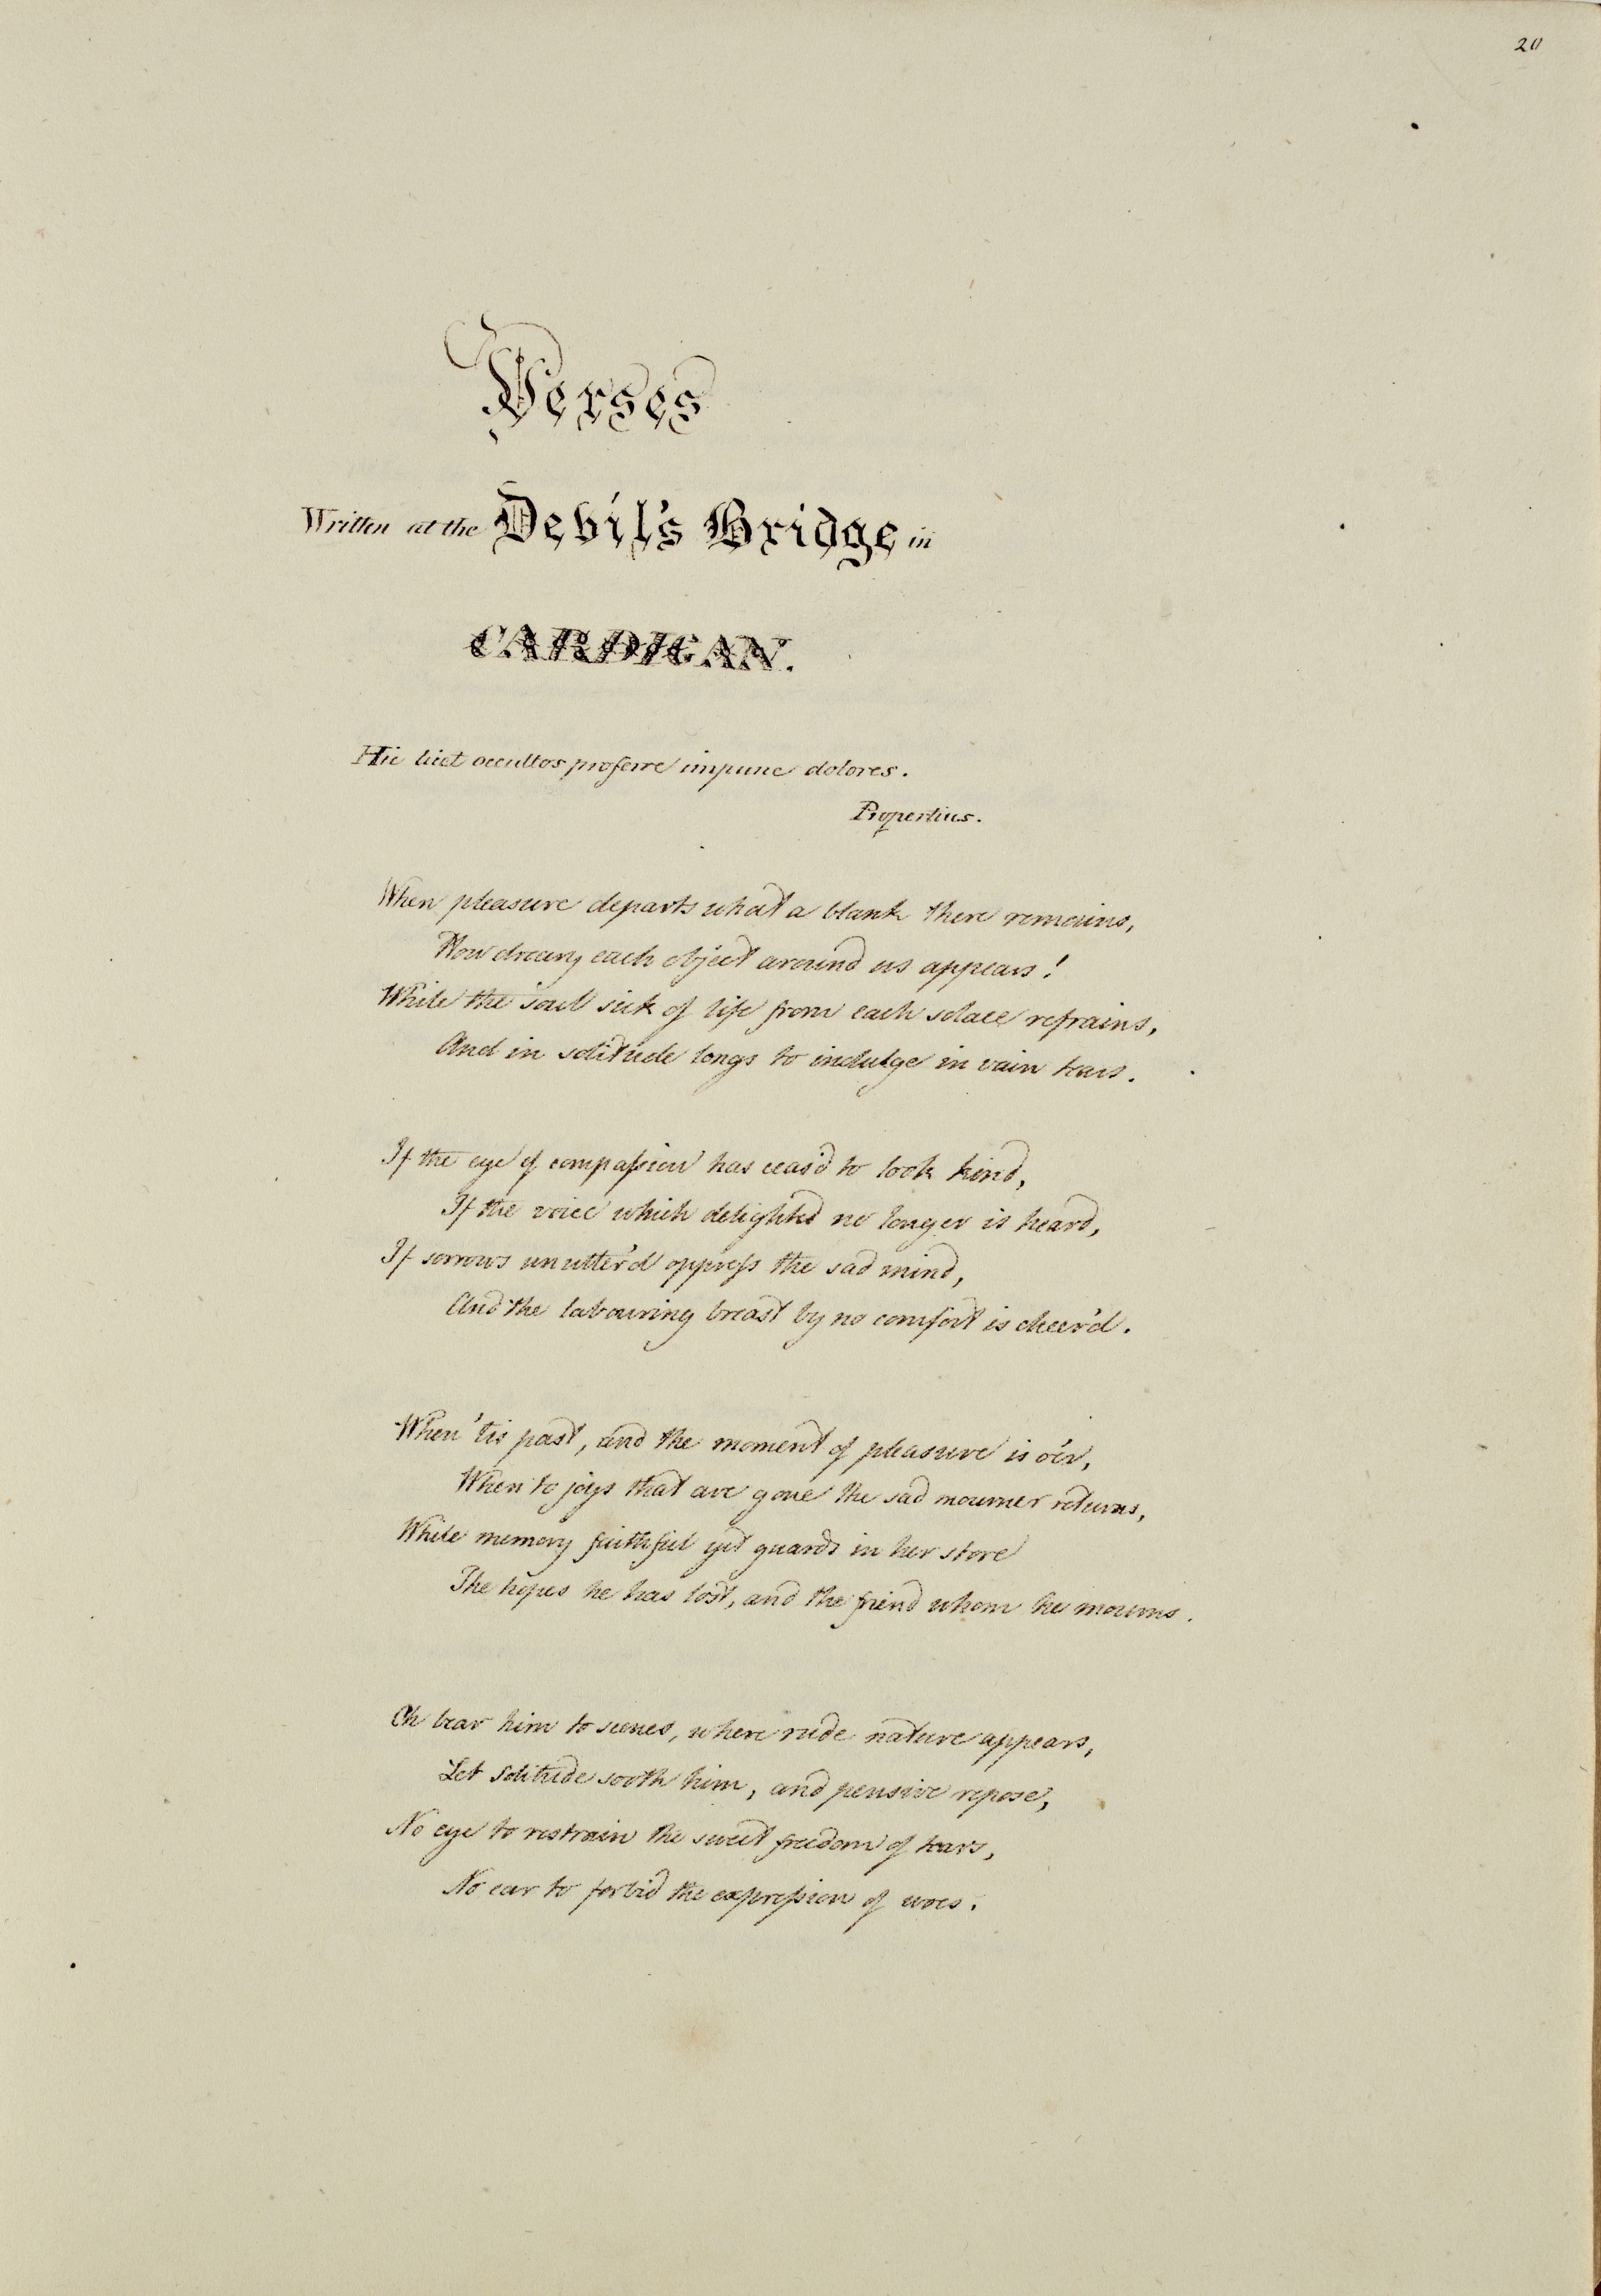 20
Verses
Written at the Devil's Bridge in
CARDIGAN.
Hic licet occultos proferre impune dolores.
Propertius.
When pleasure departs what a blank there remains,
How dreary each object around us appears!
While the soul sick of life from each solace refrains,
And in solitude longs to indulge in vain tears.
If the eye of compaſsion has ceas'd to look kind,
If the voice which delighted no longer is heard,
If sorrows unutter'd oppreſs the sad mind,
And the labouring breast by no comfort is cheer'd.
When 'tis past, and the moment of pleasure is o'er,
When to joys that are gone the sad mourner returns,
While memory faithful yet guards in her store
The hopes he has lost, and the friend whom he mourns.
Oh bear him to scenes, where rude nature appears,
Let solitude sooth him, and pensive repose,
No eye to restrain the sweet freedom of tears,
No ear to forbid the expreſsion of woes.